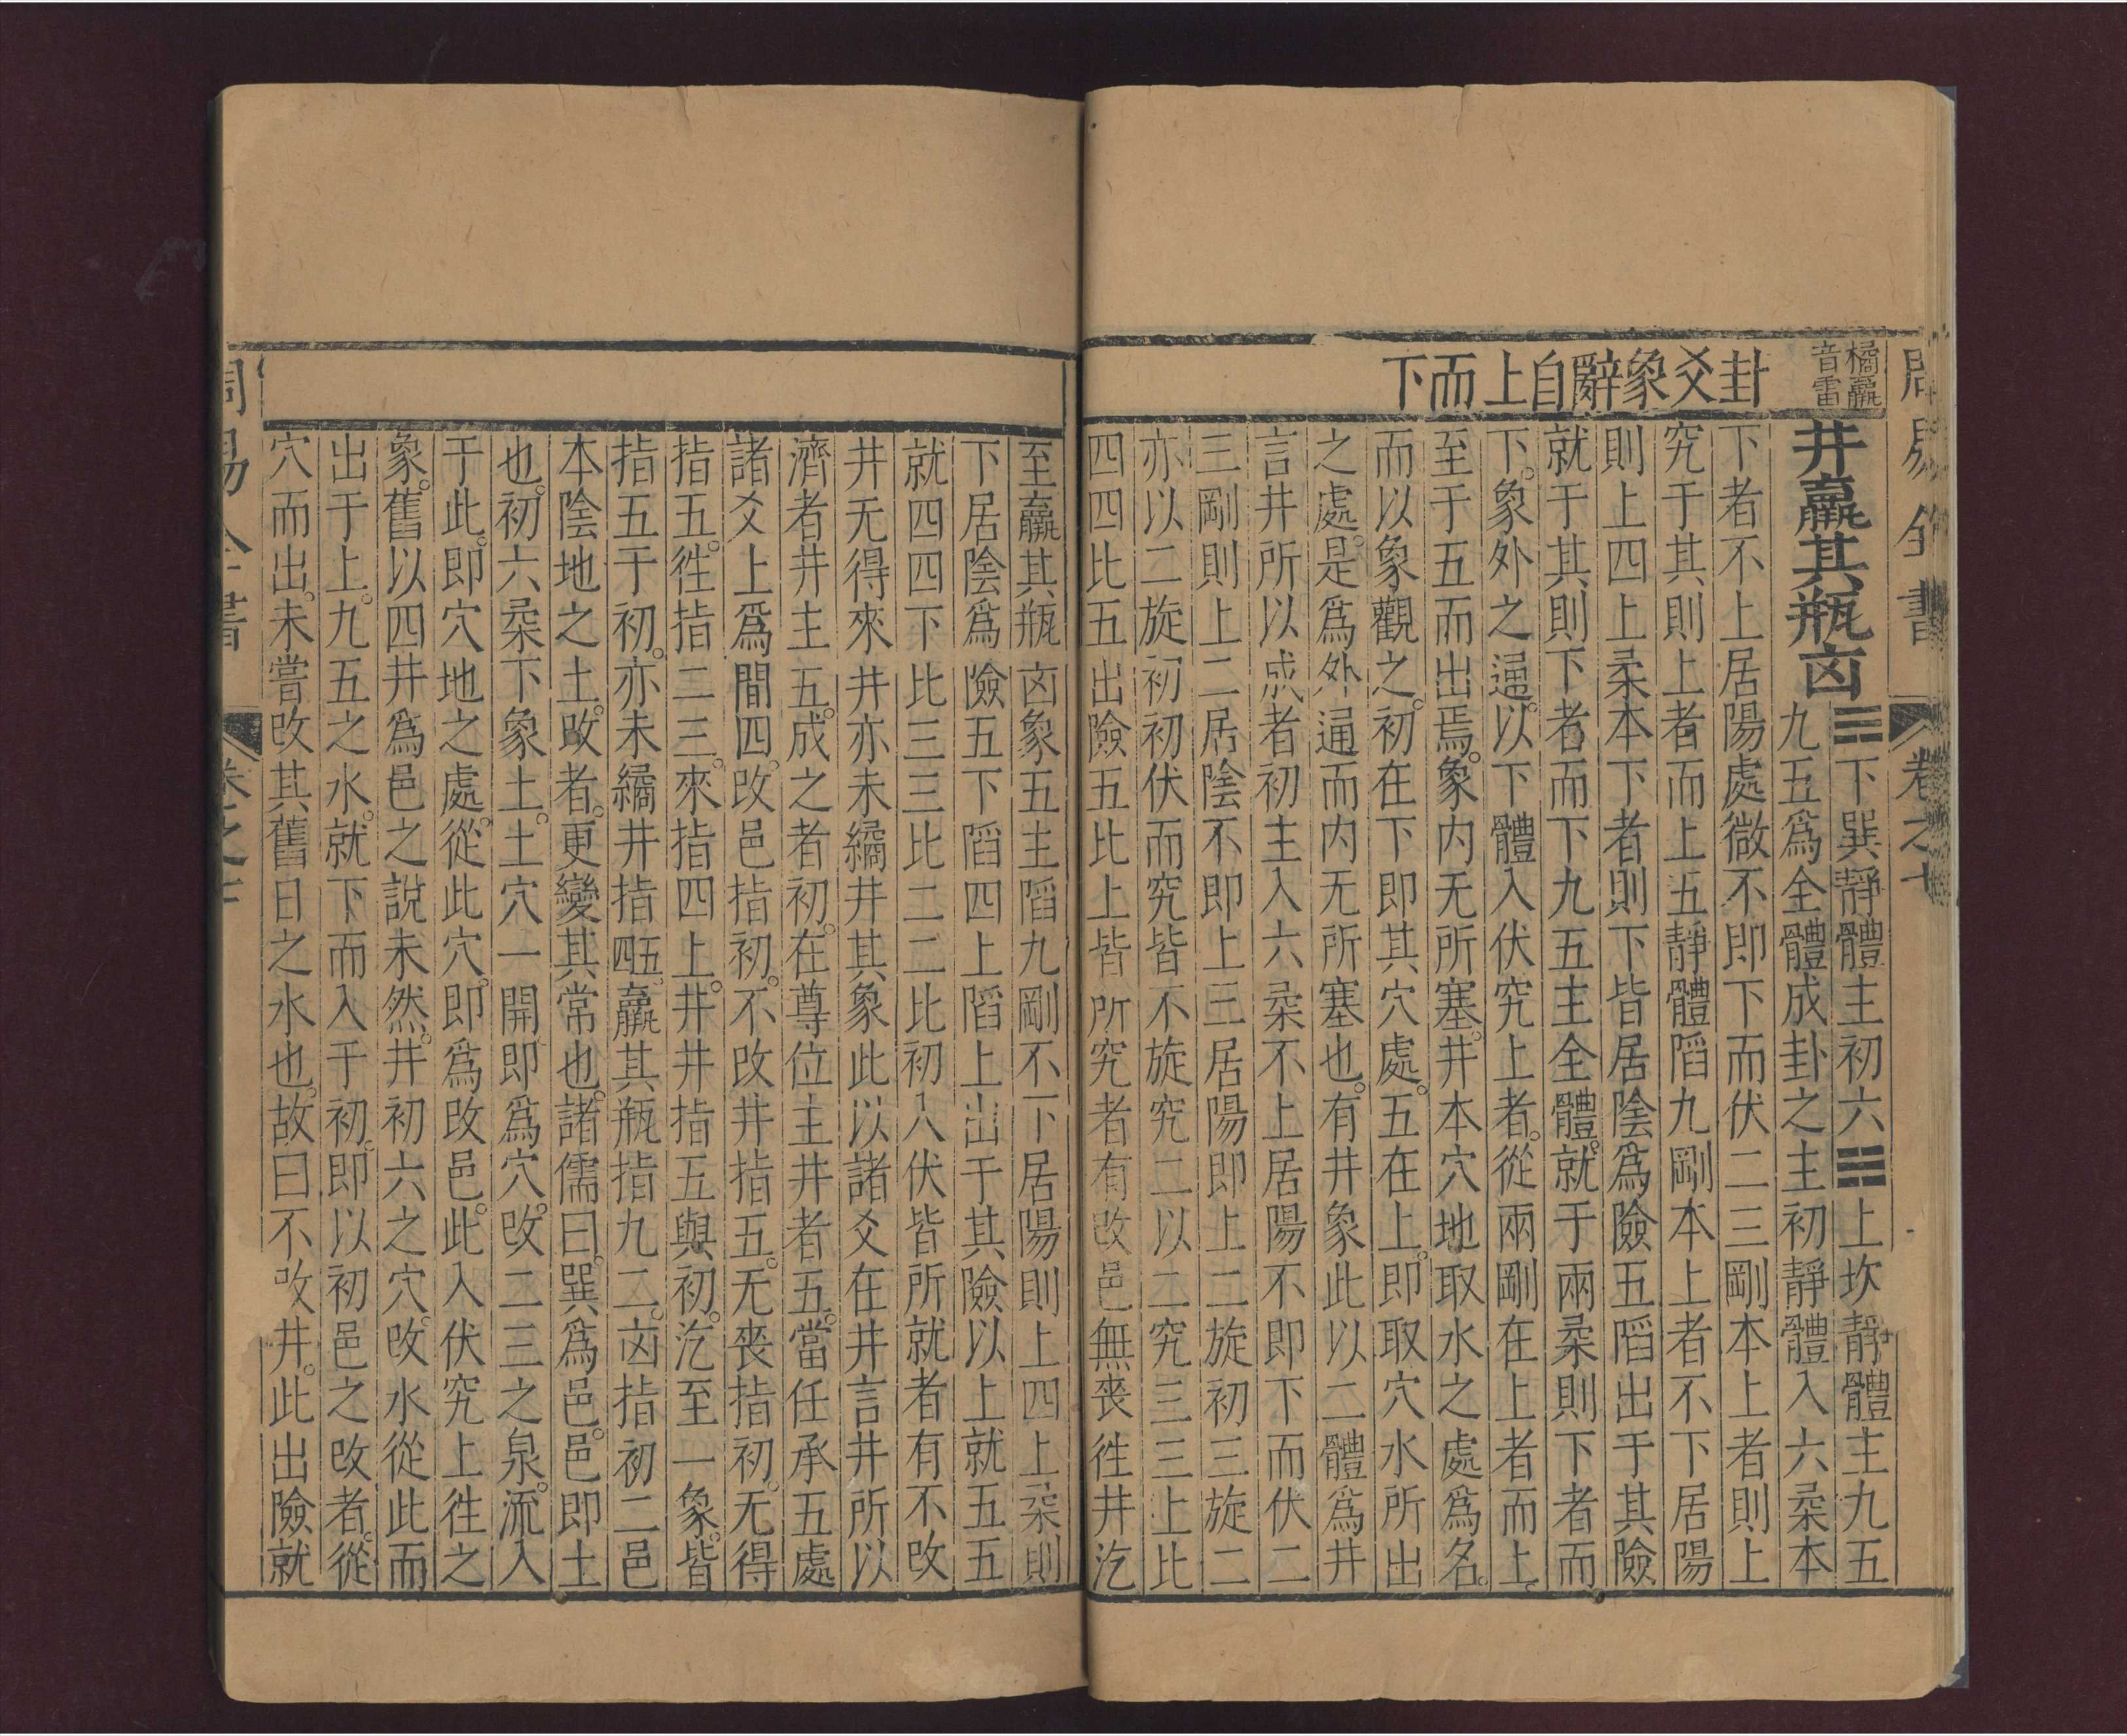 周易全書 卷之十
橘羸
音雷
卦爻象辭自上而下
井羸其瓶㐫
☴下巽靜體主初六☵上坎靜體主九五
九五爲全體成卦之主初靜體入六柔本
下者不上居陽處微不即下而伏二三剛本上者則上
究于其則上者而上五靜體陷九剛本上者不下居陽
則上四上柔本下者則下皆居陰爲險五陷出于其險
就于其則下者而下九五主全體就于兩柔則下者而
下。象外之逼。以下體入伏究上者。從兩剛在上者而上。
至于五而出焉。象内无所塞。井本穴地取水之處爲名。
而以象觀之。初在下即其穴處。五在上。即取穴水所出
之處。是爲外通而内无所塞也。有井象此以二體爲井
言井所以成者初主入六柔不上居陽不即下而伏二
三剛則上二居陰不即上三居陽即上二旋初三旋二
亦以二旋初初伏而究皆不旋究二以二究三三上比
四四比五出險五比上皆所究者有改邑無喪徃井汔
至羸其瓶㐫象五主陷九剛不下居陽則上四上柔則
下居陰爲險五下陷四上陷上出于其險以上就五五
就四四下比三三比二二比初八伏皆所就者有不改
井无得來井亦未繘井其象此以諸爻在井言井所以
濟者井主五。成之者初。在尊位主井者五。當任承五處
諸爻上爲間四。改邑指初。不改井指五。无喪指初。无得
指五。徃指二三。來指四上。井井指五與初。汔至一象。皆
指五于初。亦未繘井指四五。羸其瓶指九二。㐫指初二邑
本陰地之土。改者。更變其常也。諸儒曰。巽爲邑。邑即土
也。初六柔下象土。土穴一開即爲穴。改二三之泉。流入
于此。即穴地之處。從此穴。即爲改邑。此入伏究上徃之
象。舊以四井爲邑之說未然。井初六之穴。改水從此而
出于上。九五之水。就下而入于初。即以初邑之改者。從
穴而出。未嘗改其舊日之水也。故曰不改井。此出險就
周易全書 卷之十